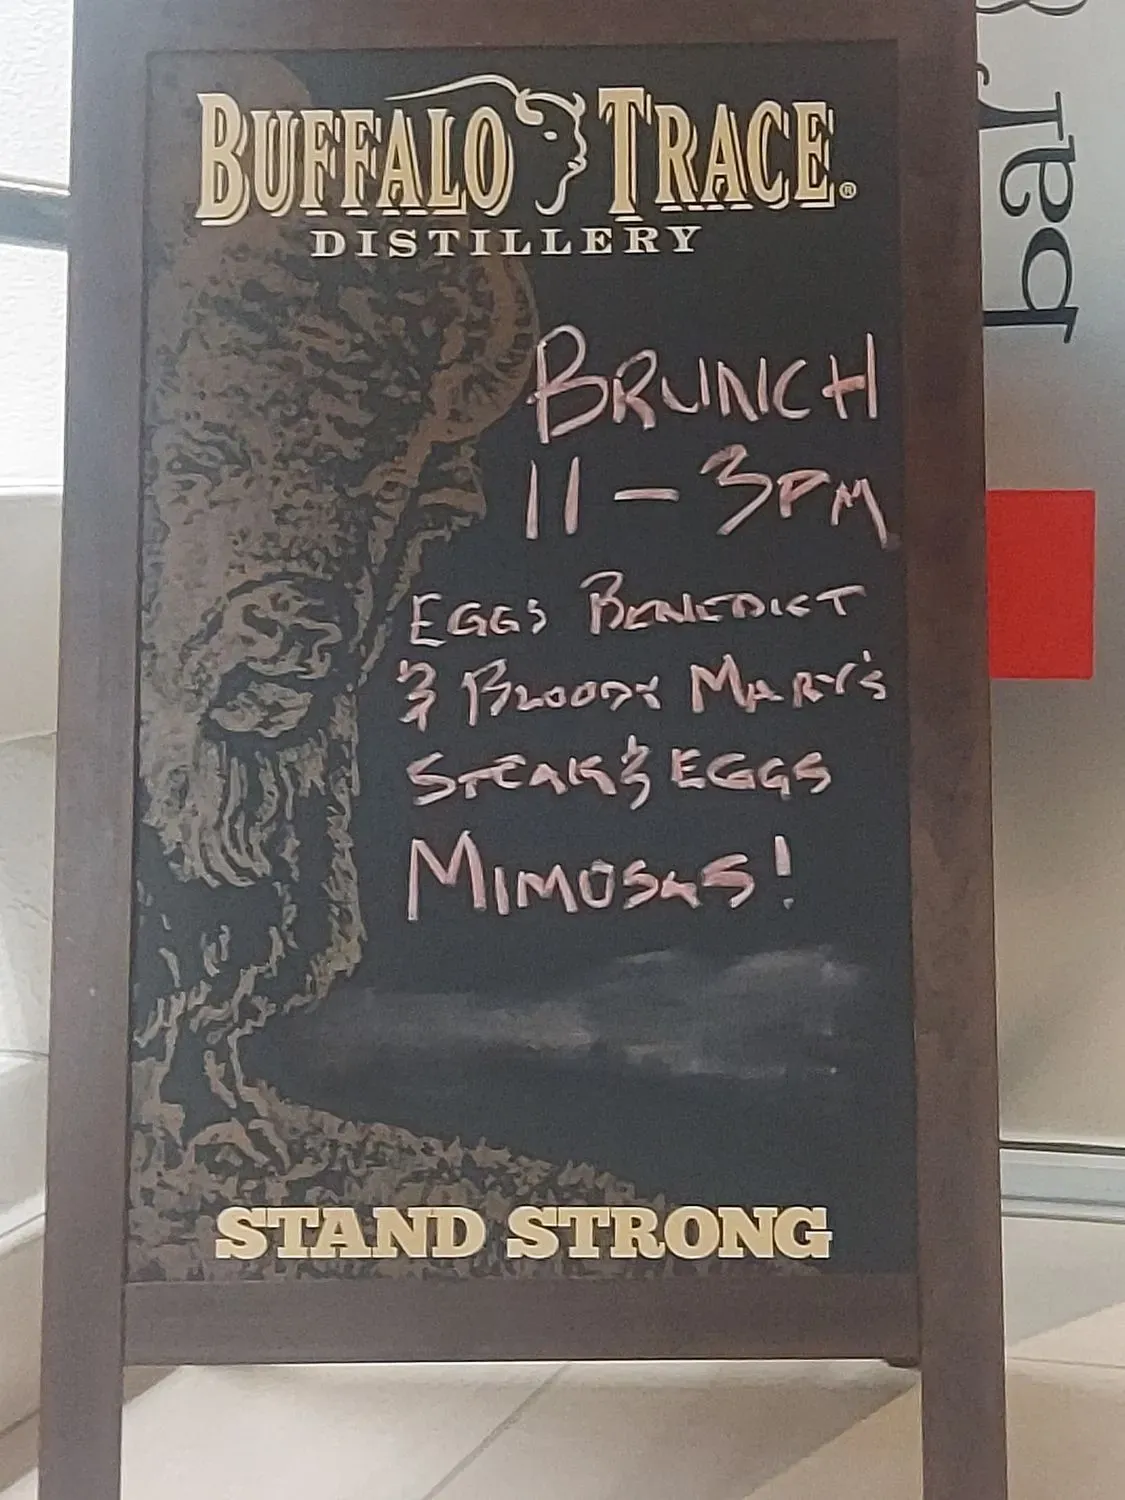 BUFFALO TRACE®
DISTILLERY
BRUNCH
11 - 3PM
EGGS BENEDICT
& BLOODY MARY'S
STEAK & EGGS
MIMOSAS!
STAND STRONG